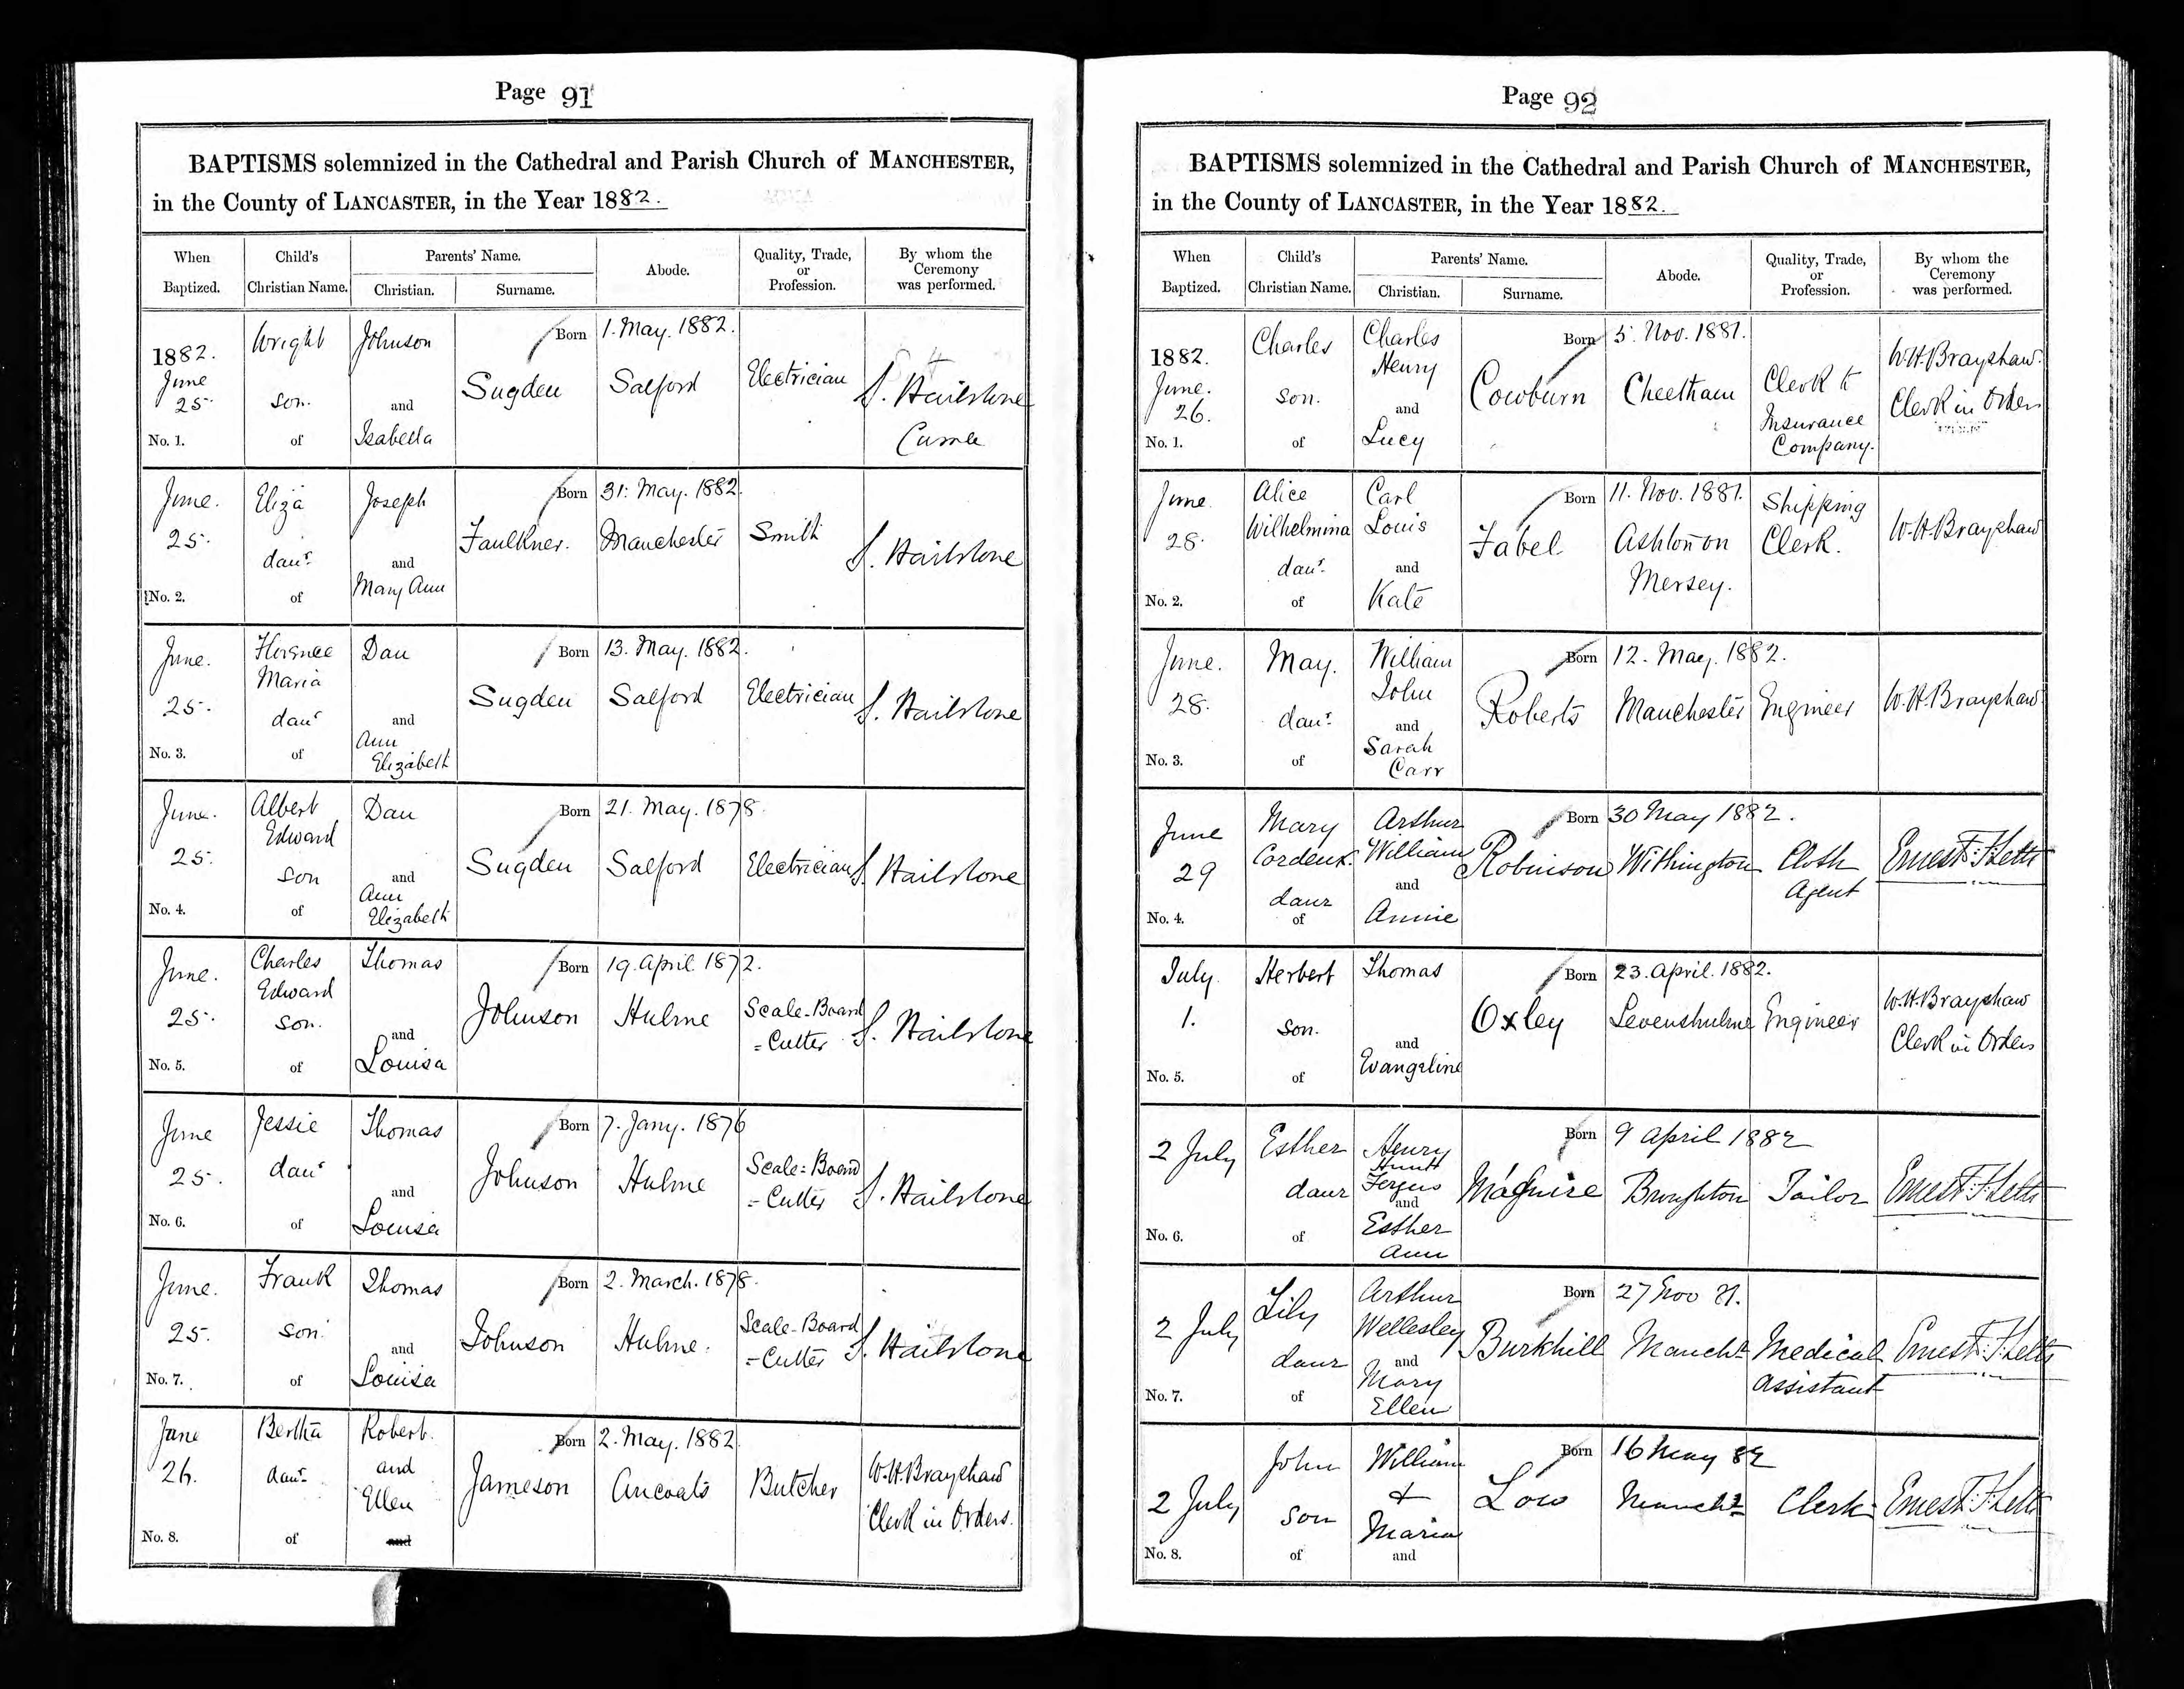 Page 91
BAPTISMS solemnized in the Cathedral and Parish Church of MANCHESTER,
in the County of LANCASTER, in the Year 1882.
When Baptized.
Child's Christian Name.
Parents' Name.
Christian.
Surname.
Abode.
Quality, Trade, or Profession.
By whom the Ceremony was performed.
1882. June 25. No. 1.
Wright son. of
Johnson and Isabella
Sugden
Born 1. May. 1882.
Salford
Electrician
S. Hailstone Curate
June. 25. No. 2.
Eliza daur. of
Joseph and Mary Ann
Faulkner.
Born 31. May. 1882.
Manchester
Smith
S. Hailstone
June. 25. No. 3.
Florence Maria daur of
Dan and Ann Elizabeth
Sugden
Born 13. May. 1882.
Salford
Electrician
S. Hailstone
June. 25. No. 4.
Albert Edward son of
Dan and Ann Elizabeth
Sugden
Born 21. May. 1878.
Salford
Electrician
S. Hailstone
June. 25. No. 5.
Charles Edward son. of
Thomas and Louisa
Johnson
Born 19. April. 1872.
Hulme
Scale-Board =Cutter
S. Hailstone
June 25. No. 6.
Jessie daur of
Thomas and Louisa
Johnson
Born 7. Jany. 1876
Hulme
Scale=Board =Cutter
S. Hailstone
June. 25. No. 7.
Frank son. of
Thomas and Louisa
Johnson
Born 2. March. 1878.
Hulme.
Scale-Board =Cutter
S. Hailstone
June 26. No. 8.
Bertha daur. of
Robert. and Ellen and
Jameson
Born 2. May. 1882
Ancoats
Butcher
W.H. Brayshaw Clerk in Orders.
Page 92
BAPTISMS solemnized in the Cathedral and Parish Church of MANCHESTER,
in the County of LANCASTER, in the Year 1882.
When Baptized.
Child's Christian Name.
Parents' Name.
Christian.
Surname.
Abode.
Quality, Trade, or Profession.
By whom the Ceremony was performed.
1882. June. 26. No. 1.
Charles son. of
Charles Henry and Lucy
Cowburn
Born 5. Nov. 1881.
Cheetham
Clerk to Insurance Company.
W.H. Brayshaw. Clerk in Orders
June 28. No. 2.
Alice Wilhelmina daur. of
Carl Louis and Kate
Fabel
Born 11. Nov. 1881.
Ashton on Mersey.
Shipping Clerk.
W.H. Brayshaw
June. 28. No. 3.
May. daur. of
William John and Sarah Carr
Roberts
Born 12. May. 1882.
Manchester
Engineer
W.H. Brayshaw.
June 29 No. 4.
Mary daur of
Arthur William and Annie
Robinson
Born 30 May 1882.
Withington
Cloth Agent
Ernest F. Letts
July. 1. No. 5.
Herbert son. of
Thomas and Evangeline
Oxley
Born 23. April. 1882.
Levenshulme
Engineer
W.H. Brayshaw Clerk in Orders
2 July No. 6.
Esther daur of
Henry Fergus and Esther Ann
Maguire
Born 9 April 1882
Broughton
Tailor
Ernest F. Letts
2 July No. 7.
Lily daur of
Arthur Wellesley and Mary Ellen
Burkhill
Born 27 Nov 81.
Mancht
Medical Assistant
Ernest F. Letts
2 July No. 8.
John son of
William & Maria and
Low
Born 16 May 82
Mancht
Clerk
Ernest F. Letts